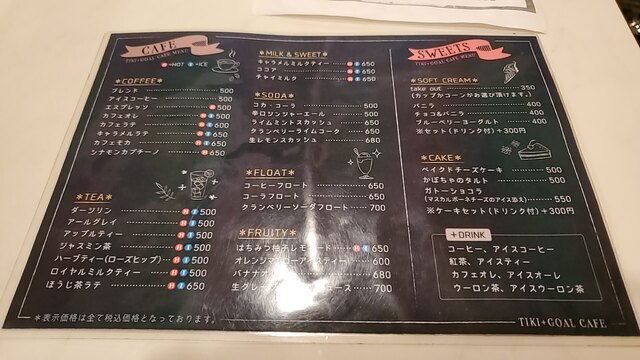 CAFE
TIKI+GOAL CAFE MENU
H=HOT I=ICE
*COFFEE*
ブレンド 500
アイスコーヒー 500
エスプレッソ H 500
カフェオレ H I 500
カフェラテ H I 600
キャラメルラテ H I 650
カフェモカ H I 650
シナモンカプチーノ H 650
*TEA*
ダージリン H I 500
アールグレイ H I 500
アップルティー H I 500
ジャスミン茶 H I 500
ハーブティー(ローズヒップ) H I 500
ロイヤルミルクティー H I 500
ほうじ茶ラテ H I 650
*表示価格は全て税込価格となっております。
*MILK & SWEET*
キャラメルミルクティー H I 650
ココア H I 650
チャイミルク H I 650
*SODA*
コカ・コーラ 500
辛口ジンジャーエール 500
ライムミントスカッシュ 650
クランベリーライムコーク 650
生レモンスカッシュ 680
*FLOAT*
コーヒーフロート 650
コーラフロート 650
クランベリーソーダフロート 700
*FRUITY*
はちみつ柚子レモネード H I 650
オレンジマンゴーアイスティー 600
バナナ 680
生グレー ース 700
SWEETS
TIKI+GOAL CAFE MENU
*SOFT CREAM*
take out 350
(カップかコーンがお選び頂けます。)
バニラ 400
チョコ&バニラ 400
ブルーベリーヨーグルト 400
※セット(ドリンク付)+300円
*CAKE*
ベイクドチーズケーキ 500
かぼちゃのタルト 500
ガトーショコラ
(マスカルポーネチーズのアイス添え) 550
※ケーキセット(ドリンク付)+300円
+DRINK
コーヒー、アイスコーヒー
紅茶、アイスティー
カフェオレ、アイスオーレ
ウーロン茶、アイスウーロン茶
TIKI+GOAL CAFE